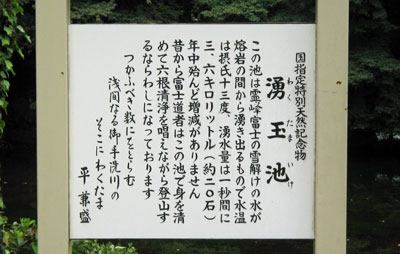 国指定特別天然記念物
わくたまいけ
湧玉池
この池は霊峰富士の雪解けの水が
熔岩の間から湧き出るもので水温
は摂氏十三度、湧水量は一秒間に
三．六キロリットル（約二〇石）
年中殆んど増減がありません
昔から富士道者はこの池で身を清
めて六根清浄を唱えながら登山す
るならわしになっております
つかふべき数にをとらむ
浅間なる御手洗川の
そこにわくたま
平兼盛